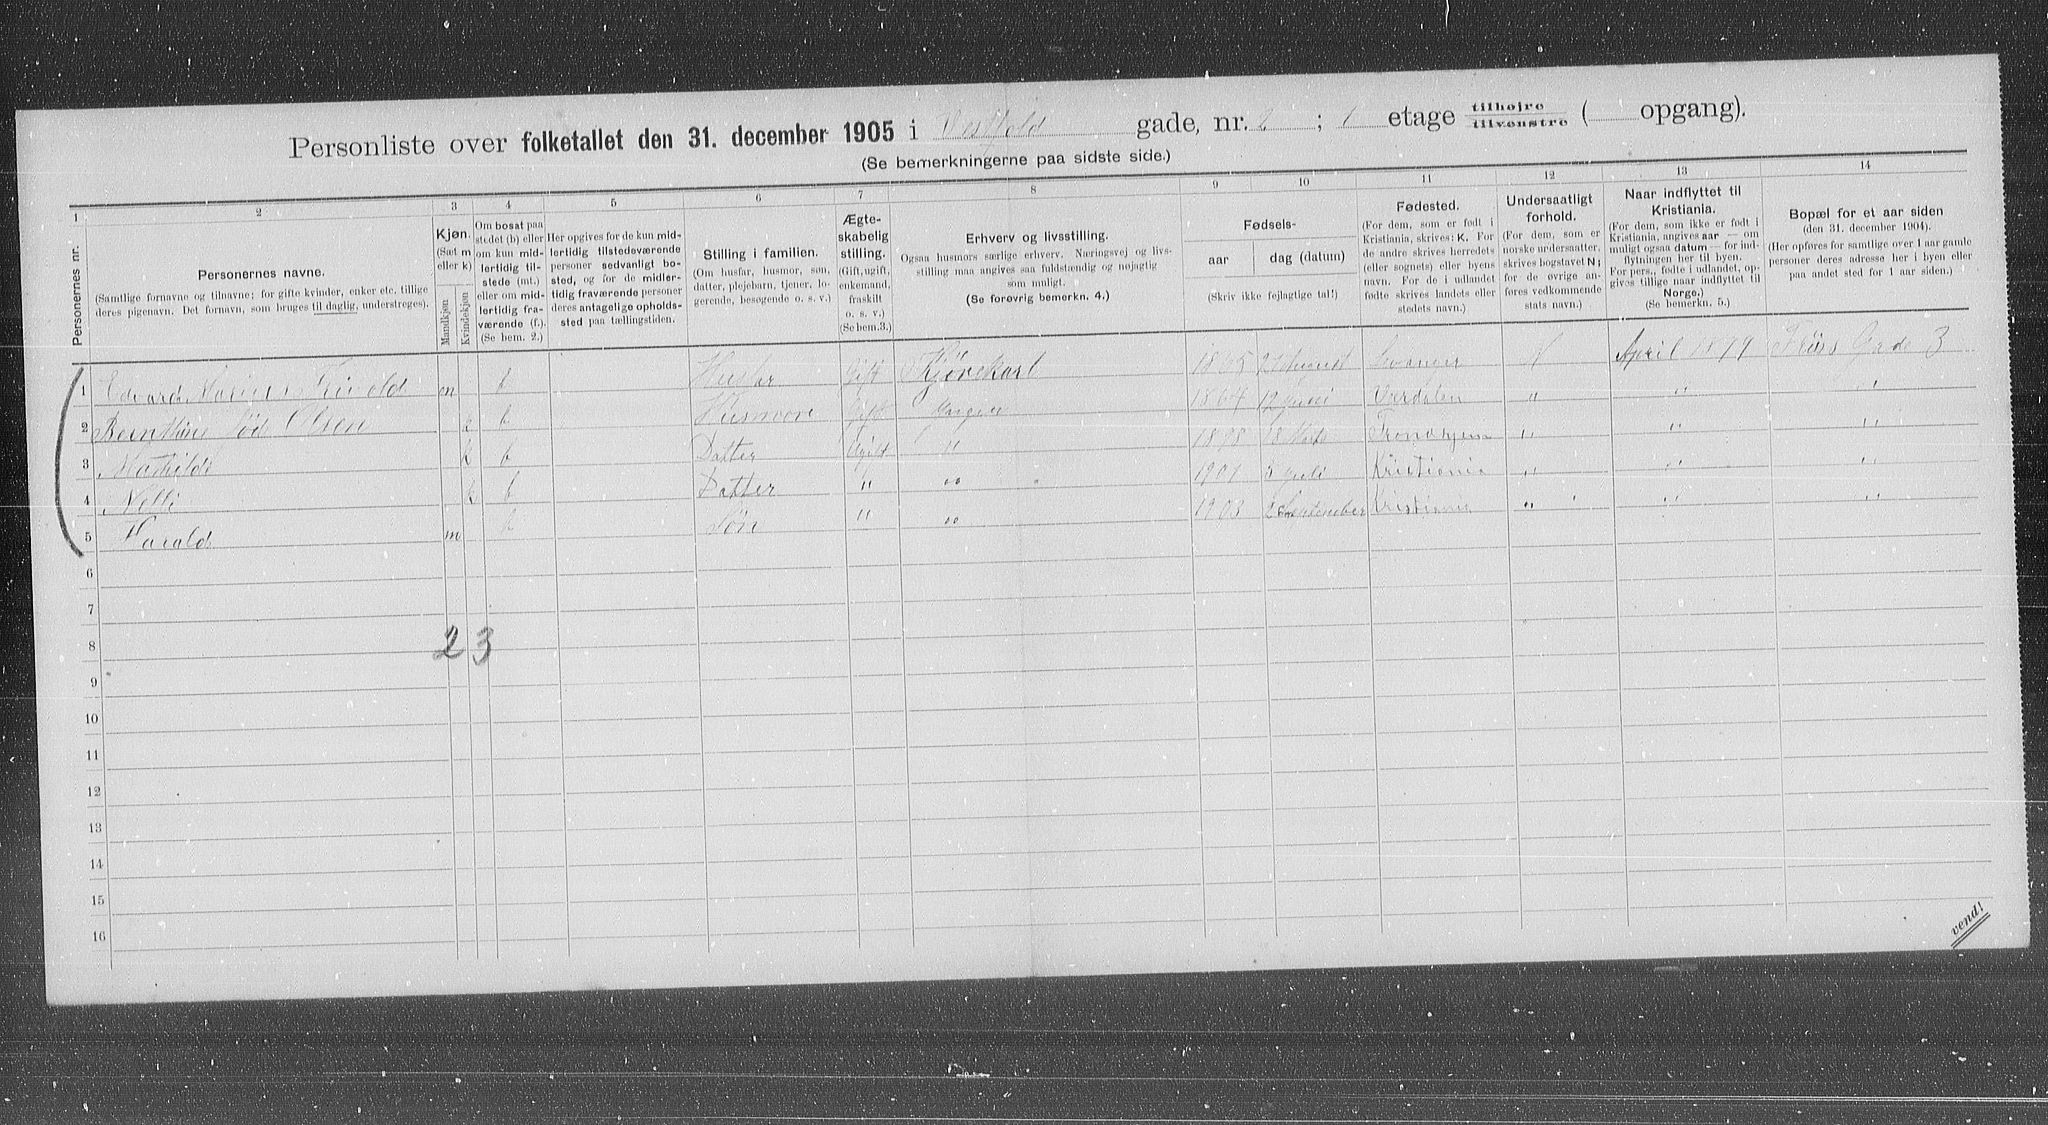 Personliste over folketallet den 31. december 1905 i Vestfold gade, nr. 2 ; 1 etage tilhøjre / tilvenstre ( opgang).
(Se bemerkningerne paa sidste side.)
1 2 3 4 5 6 7 8 9 10 11 12 13 14
Personernes nr.
Personernes navne.
(Samtlige fornavne og tilnavne; for gifte kvinder, enker etc. tillige
deres pigenavn. Det fornavn, som bruges til daglig, understreges).
Kjøn.
(Sæt m
eller k)
Mandkjøn
Kvindekjøn
Om bosat paa
stedet (b) eller
om kun mid-
lertidig til-
stede (mt.)
eller om mid-
lertidig fra-
værende (f.).
(Se bem. 2.)
Her opgives for de kun mid-
lertidig tilstedeværende
personer sedvanlig bo-
sted, og for de midler-
tidig fraværende personer
deres antagelige opholds-
sted paa tællingstiden.
Stilling i familien.
(Om husfar, husmor, søn,
datter, plejebarn, tjener, lo-
gerende, besøgende o. s. v.)
Ægte-
skabelig
stilling.
(Gift, ugift,
enkemand,
fraskilt
o. s. v.)
(Se bem.3.)
Erhverv og livsstilling.
Ogsaa husmors særlige erhverv. Næringsvej og livs-
stilling maa angives saa fuldstændig og nøjagtig
som muligt.
(Se forøvrig bemerkn. 4.)
Fødsels-
aar dag (datum)
(Skriv ikke fejlagtige tal!)
Fødested.
(For dem, som er født i
Kristiania, skrives: K. For
de andre skrives herredets
(eller sognets) eller byens
navn. For de i udlandet
fødte skrives landets eller
stedets navn.)
Undersaatligt
forhold.
(For dem, som er
norske undersaatter,
skrives bogstavet N;
for de øvrige an-
føres vedkommende
stats navn.)
Naar indflyttet til
Kristiania.
(For dem, som ikke er født i
Kristiania, angives aar — om
muligt ogsaa datum — for ind-
flytningen her til byen.
For pers., fødte i udlandet, op-
gives tillige naar indflyttet til
Norge.)
(Se bemerkn. 5.)
Bopæl for et aar siden
(den 31. december 1904).
(Her opføres for samtlige over 1 aar gamle
personer deres adresse her i byen eller
paa andet sted for 1 aar siden.)
1 Edvard Marius m b Husfar Gift Kjørekarl 1865 August Levanger N April 1899 Friis Gade 3
2 Olsen k b Husmore Gift 1864 12 Verdalen " " "
3 Mathilde k b Datter Ugift " 1898 18 Trondhjem " " "
4 Nelli k b Datter " " 1901 3 Juli Kristiania " " "
5 Harald m b Søn " " 1903 2 September Kristiania " " "
6
7
8 2 3
9
10
11
12
13
14
15
16
vend!